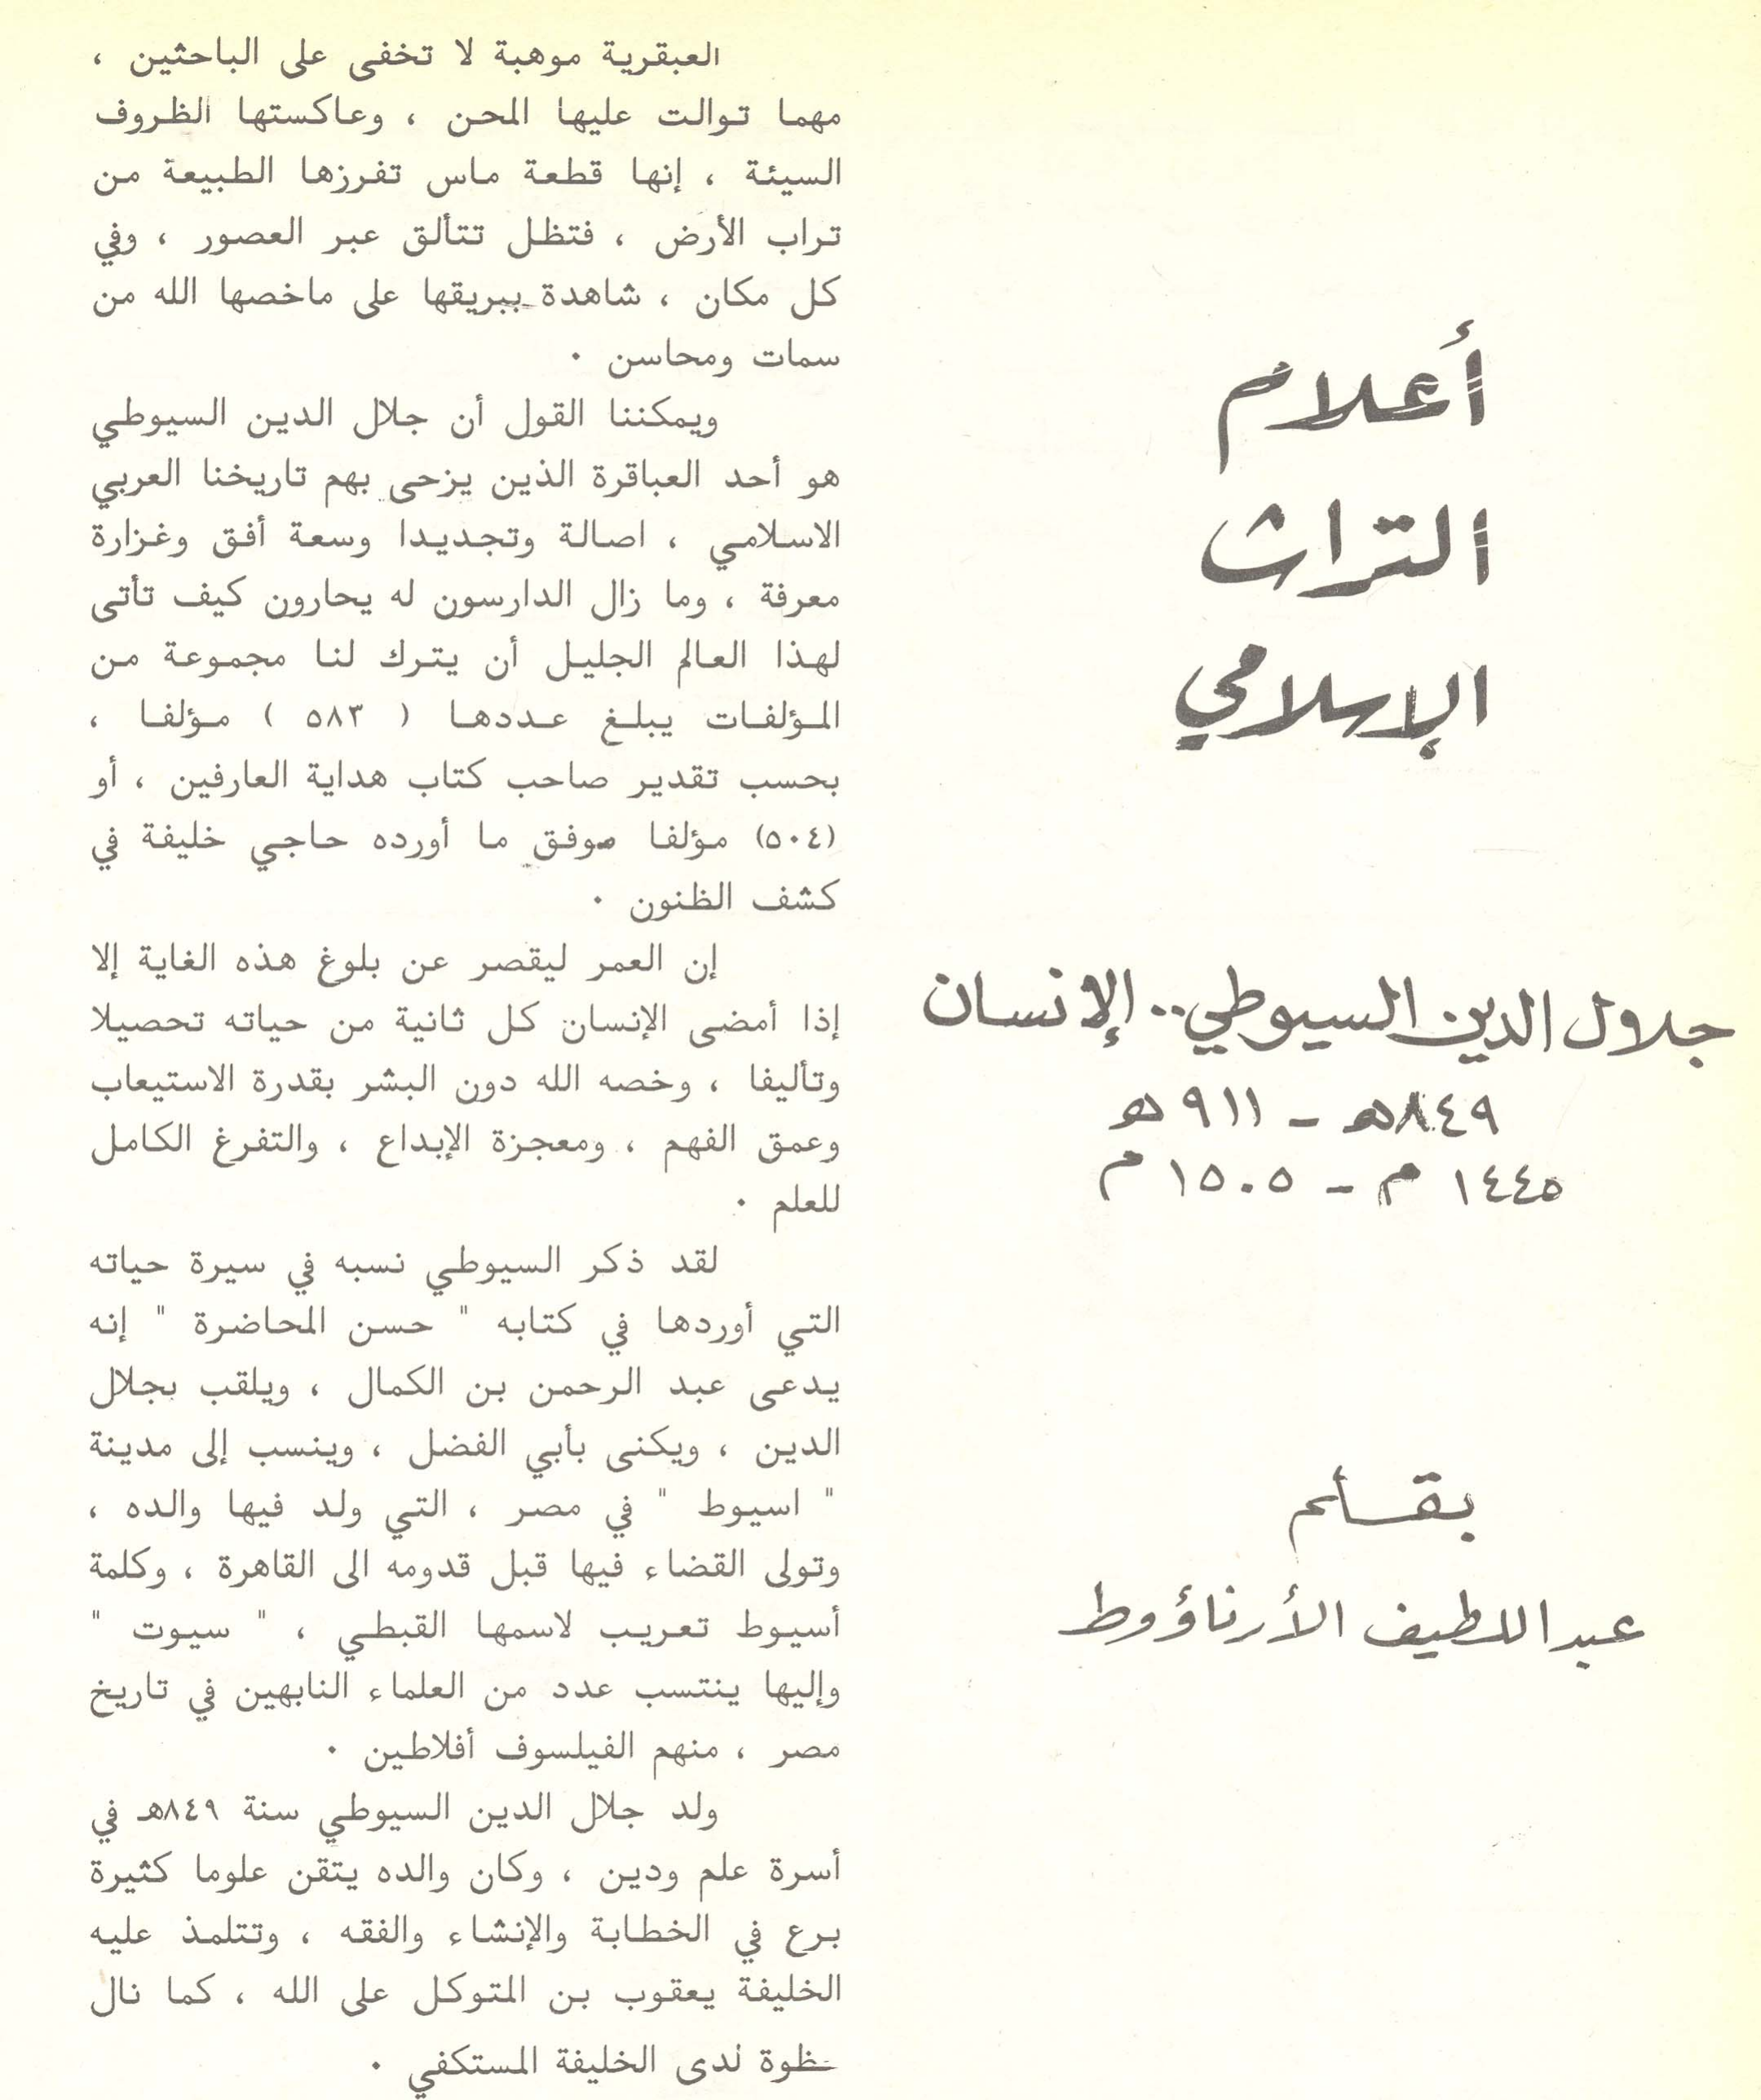 أعلام
التراث
الإسلامي
جلال الدين السيوطي.. الإنسان
٨٤٩هـ - ٩١١ هـ
١٤٤٥ م - ١٥٠٥ م
بقلم
عبد اللطيف الأرناؤوط
العبقرية موهبة لا تخفى على الباحثين ،
مهما توالت عليها المحن ، وعاكستها الظروف
السيئة ، إنها قطعة ماس تفرزها الطبيعة من
تراب الأرض ، فتظل تتألق عبر العصور ، وفي
كل مكان ، شاهدة ببريقها على ماخصها الله من
سمات ومحاسن ٠
ويمكننا القول أن جلال الدين السيوطي
هو أحد العباقرة الذين يزحى بهم تاريخنا العربي
الاسلامي ، اصالة وتجديدا وسعة أفق وغزارة
معرفة ، وما زال الدارسون له يحارون كيف تأتى
لهذا العالم الجليل أن يترك لنا مجموعة من
المؤلفات يبلغ عددها ( ٥٨٣ ) مؤلفا ،
بحسب تقدير صاحب كتاب هداية العارفين ، أو
(٥٠٤) مؤلفا موفق ما أورده حاجي خليفة في
كشف الظنون ٠
إن العمر ليقصر عن بلوغ هذه الغاية إلا
إذا أمضى الإنسان كل ثانية من حياته تحصيلا
وتأليفا ، وخصه الله دون البشر بقدرة الاستيعاب
وعمق الفهم ، ومعجزة الإبداع ، والتفرغ الكامل
للعلم ٠
لقد ذكر السيوطي نسبه في سيرة حياته
التي أوردها في كتابه " حسن المحاضرة " إنه
يدعى عبد الرحمن بن الكمال ، ويلقب بجلال
الدين ، ويكنى بأبي الفضل ، وينسب إلى مدينة
" اسيوط " في مصر ، التي ولد فيها والده ،
وتولى القضاء فيها قبل قدومه الى القاهرة ، وكلمة
أسيوط تعريب لاسمها القبطي ، " سيوت "
وإليها ينتسب عدد من العلماء النابهين في تاريخ
مصر ، منهم الفيلسوف أفلاطين ٠
ولد جلال الدين السيوطي سنة ٨٤٩هـ في
أسرة علم ودين ، وكان والده يتقن علوما كثيرة
برع في الخطابة والإنشاء والفقه ، وتتلمذ عليه
الخليفة يعقوب بن المتوكل على الله ، كما نال
حظوة لدى الخليفة المستكفي ٠